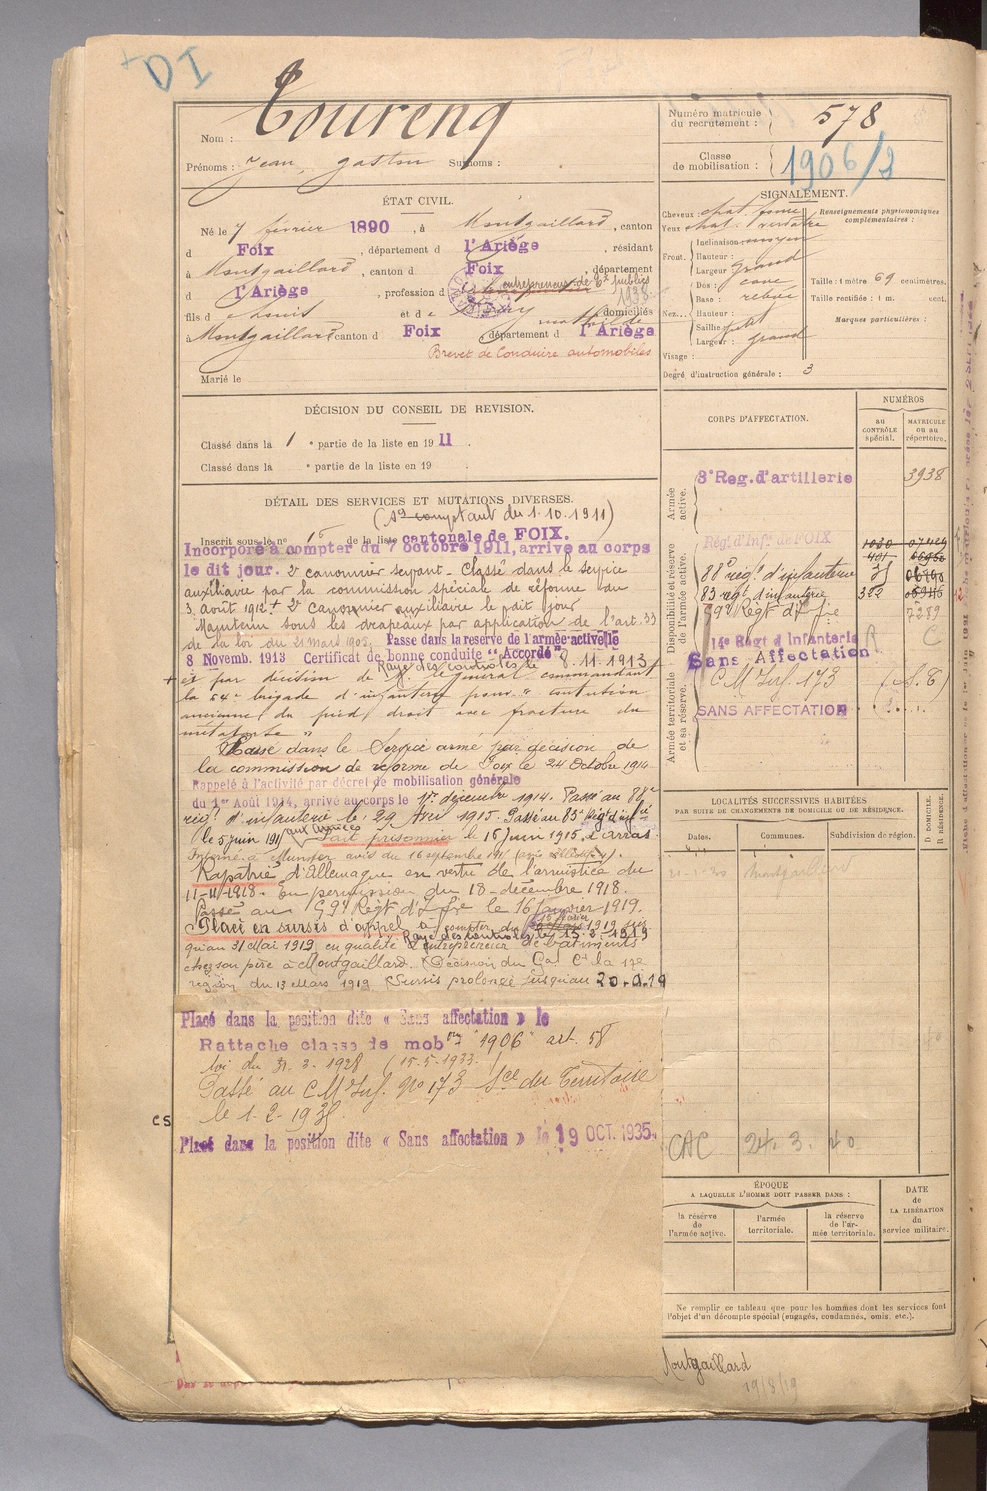 DI
Nom : Toureng
Prénoms : Jean, gaston Surnoms :
Numéro matricule du recrutement : 578
Classe de mobilisation : 1906/2
ÉTAT CIVIL.
Né le 7 février 1890, à Montgaillard, canton
d Foix, département d l'Ariège, résidant
à Montgaillard, canton d Foix, département
d l'Ariège, profession d entrepreneur de publics
1938
fils d et de domiciliés
à Montgaillard canton d Foix, département d l'Ariège
Brevet de Conduire automobiles
Marié le
SIGNALEMENT.
Cheveux : chat. foncé
Yeux chat. verdâtre
Front. Inclinaison moyen
Hauteur :
Largeur grand
Nez. Dos : cave
Base : relevé
Hauteur :
Saillie petit
Largeur : grand
Visage :
Degré d'instruction générale : 3
Renseignements physionomiques complémentaires :
Taille : 1 mètre 69 centimètres.
Taille rectifiée : 1 m. cent.
Marques particulières :
DÉCISION DU CONSEIL DE REVISION.
Classé dans la 1 e partie de la liste en 1911.
Classé dans la e partie de la liste en 19 .
CORPS D'AFFECTATION.
NUMÉROS
au CONTRÔLE spécial.
MATRICULE ou au répertoire.
Armée active.
8e Reg. d'artillerie 3938
Disponibilité et réserve de l'armée active.
Rég. d'Inf. de FOIX 1030
88e rég. d'infanterie
83 rég. d'infanterie 322
59e Regt d'Ifie 7289
14e Régt d'Infanterie
Sans Affectation
Armée territoriale et sa réserve.
C M Inf. 173
SANS AFFECTATION
DÉTAIL DES SERVICES ET MUTATIONS DIVERSES.
(Sd comptant du 1.10.1911)
Inscrit sous le n° 15 de la liste cantonale de FOIX.
Incorporé à compter du 7 octobre 1911, arrivé au corps
le dit jour. 2e canonnier servant. Classé dans le service
auxiliaire par la commission spéciale de réforme du
3 Août 1912 + 2e Canonnier auxiliaire le dit jour
Maintenu sous les drapeaux par application de l'art. 33
de la loi du 21 Mars 1905. Passé dans la réserve de l'armée active le
8 Novemb. 1913 Certificat de bonne conduite "Accordé"
Rayé des contrôles le 8.11.1913
+ et par décision de M. le général commandant
la 64e brigade d'infanterie pour
ancienne du pied droit avec fracture du
métatarse "
Passé dans le Service armé par décision de
la commission de réforme de Foix le 24 Octobre 1914
Rappelé à l'activité par décret de mobilisation générale
du 1er Août 1914, arrivé au corps le 1er décembre 1914. Passé au 88e
rég. d'infanterie le 29 Avril 1915. Passé au 83e Rég. d'inf
le 5 juin 191 aux Armées Fait prisonnier le 16 Juin 1915 à Arras.
Interné à Munster avis du 16 septembre
Rapatrié d'Allemagne en vertu de l'armistice du
11-11-1918. En permission du 18-décembre 1918.
Passé au 59e Régt d'Ifie le 16 Janvier 1919.
Placé en sursis d'appel à compter du 1919
qu'au 31 Mai 1919 en qualité d'entrepreneur de bâtiments
Rayé des contrôles le 15-3-1919
chez son père à Montgaillard. Décision du Gal Ct la 17e
région du 13 Mars 1919. Sursis prolongé jusqu'au
Placé dans la position dite « Sans affectation » le
Rattaché classe de mobon "1906" art. 58
loi du 31.3.1928 (15.5.1933.)
Passé au C M Inf. No 173 Sce du Territoire
le 1.2.193
Placé dans la position dite « Sans affectation » le 19 OCT. 1935
CS
LOCALITÉS SUCCESSIVES HABITÉES
PAR SUITE DE CHANGEMENTS DE DOMICILE OU DE RÉSIDENCE.
Dates.
Communes.
Subdivision de région.
D DOMICILE.
R RÉSIDENCE.
Montgaillard
CAC 24. 3. 40
ÉPOQUE
A LAQUELLE L'HOMME DOIT PASSER DANS :
la réserve de l'armée active.
l'armée territoriale.
la réserve de l'armée territoriale.
DATE de LA LIBÉRATION du service militaire.
Ne remplir ce tableau que pour les hommes dont les services font
l'objet d'un décompte spécial (engagés, condamnés, omis, etc.).
Montgaillard
19/8/19